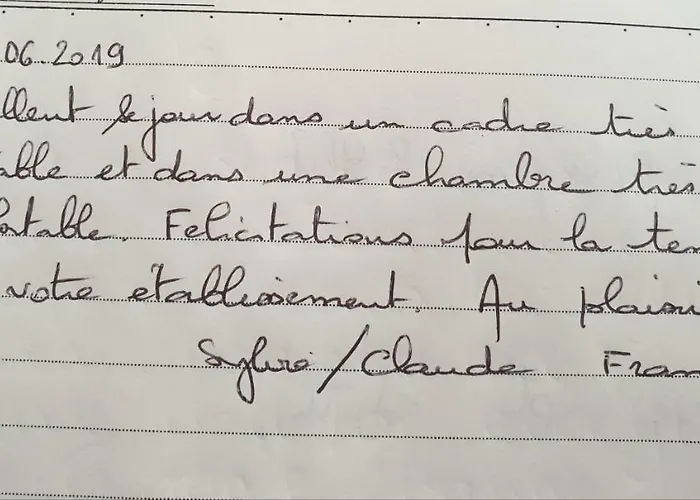 06.2019
llent séjour dans un cadre très
able et dans une chambre très
ortable. Felicitations pour la ten
votre etablissement. Au plaisi
Sylvie/Claude Fran